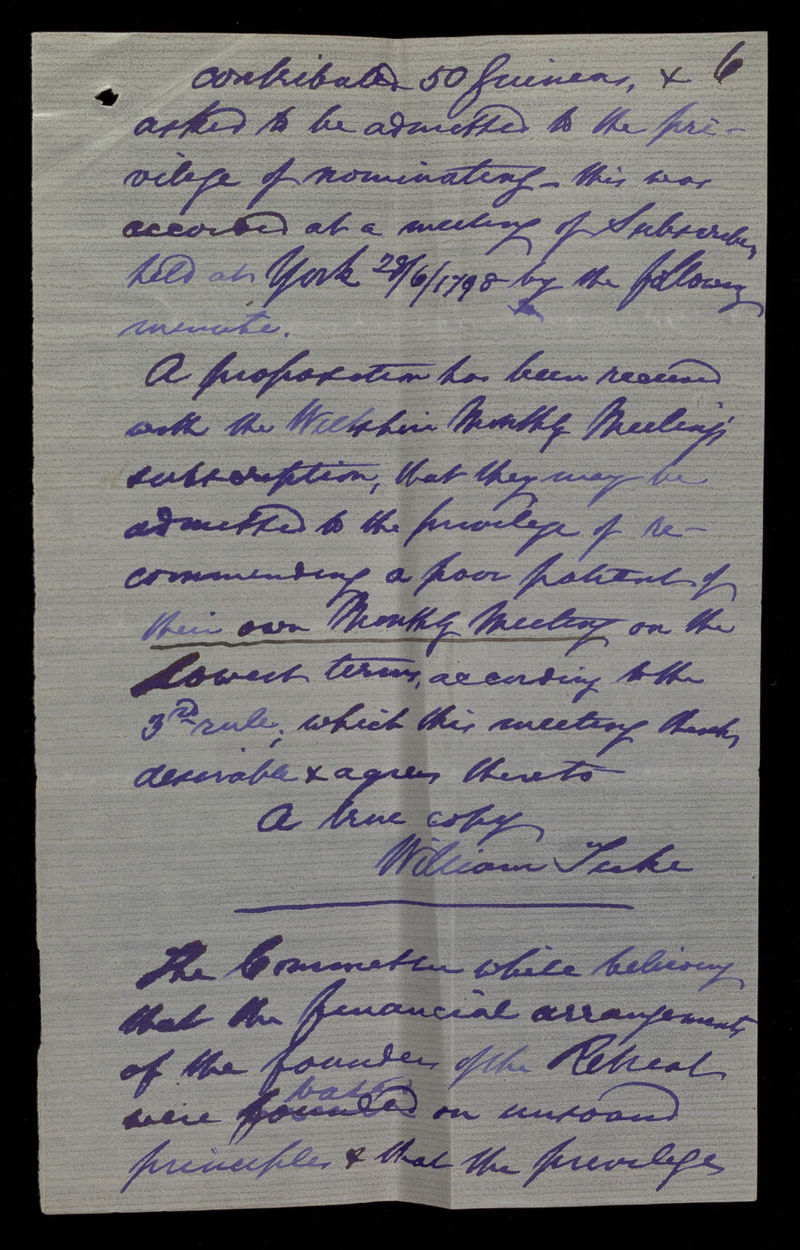 6
contributed 50 guineas, &
asked to be admitted to the pri-
vilege of nominating - this was
accorded at a meeting of Subscribers
held at York 28/6/1798 by the following
minute.
A proposition has been received
with the Wiltshire Monthly Meeting's
subscription, that they may be
admitted to the privilege of re-
commending a poor patient of
their own Monthly Meeting on the
lowest terms, according to the
3rd rule; which this meeting thinks
desirable & agrees thereto
A true copy
William Tuke
The Committee while believing
that the financial arrangements
of the founders of the Retreat
based
were founded on unsound
principles & that the privilege